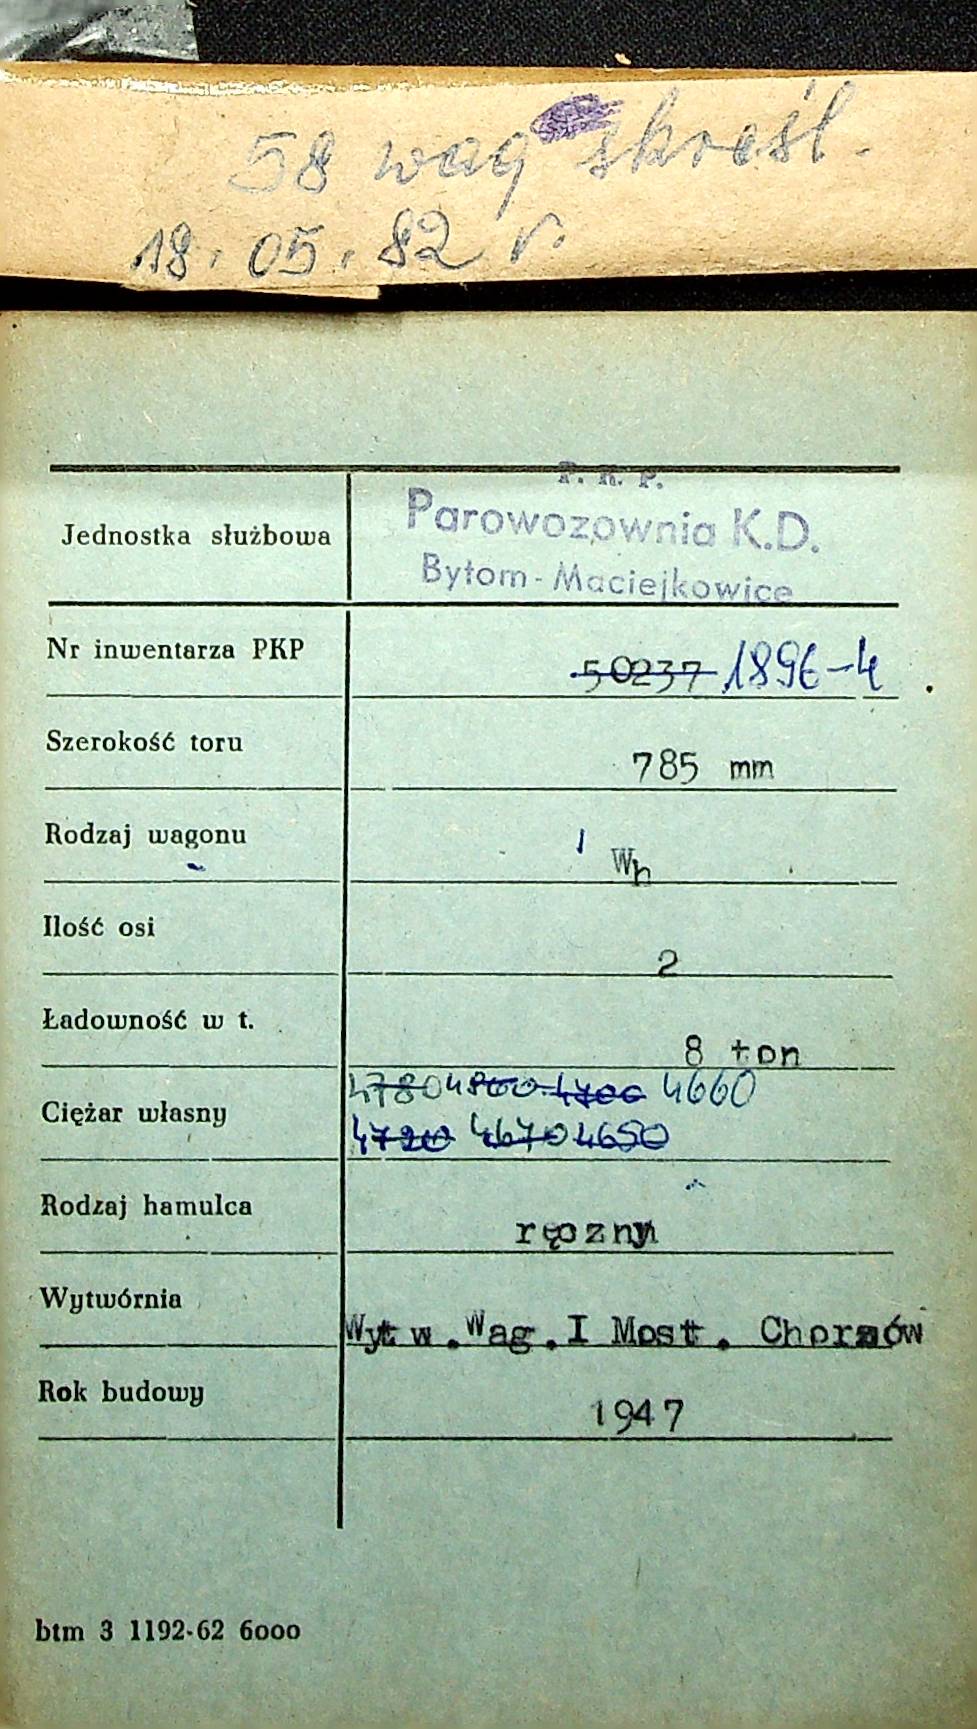 58 wag skreśl.
18.05.82 r.
P. K. P.
Jednostka służbowa Parowozownia K.D.
Bytom-Maciejkowice
Nr inwentarza PKP 50237 1896-4
Szerokość toru 785 mm
Rodzaj wagonu Wh
Ilość osi 2
Ładowność w t. 8 ton
4780 4800 4700 4660
Ciężar własny
4720 4670 4650
Rodzaj hamulca ręczny
Wytwórnia Wytw.Wag.I Most. Chorzów
Rok budowy 1947
btm 3 1192-62 6000